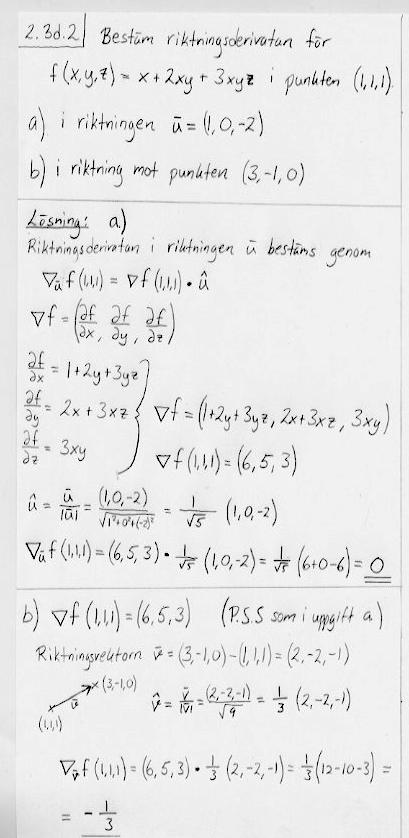 2.3d.2 Bestäm riktningsderivatan för
f(x,y,z) = x + 2xy + 3xyz i punkten (1,1,1).
a) i riktningen ū = (1,0,-2)
b) i riktning mot punkten (3,-1,0)
Lösning: a)
Riktningsderivatan i riktningen ū bestäms genom
∇ū f(1,1,1) = ∇f(1,1,1) • û
∇f = (∂f/∂x, ∂f/∂y, ∂f/∂z)
∂f/∂x = 1+2y+3yz
∂f/∂y = 2x+3xz
∂f/∂z = 3xy
∇f = (1+2y+3yz, 2x+3xz, 3xy)
∇f(1,1,1) = (6,5,3)
û = ū/|ū| = (1,0,-2)/√(1²+0²+(-2)²) = 1/√5 (1,0,-2)
∇ū f(1,1,1) = (6,5,3) • 1/√5 (1,0,-2) = 1/√5 (6+0-6) = 0
b) ∇f(1,1,1) = (6,5,3) (P.S.S som i uppgift a)
Riktningsvektorn v̄ = (3,-1,0)-(1,1,1) = (2,-2,-1)
(3,-1,0)
v̄
(1,1,1)
v̂ = v̄/|v̄| = (2,-2,-1)/√9 = 1/3 (2,-2,-1)
∇v̄ f(1,1,1) = (6,5,3) • 1/3 (2,-2,-1) = 1/3 (12-10-3) =
= -1/3